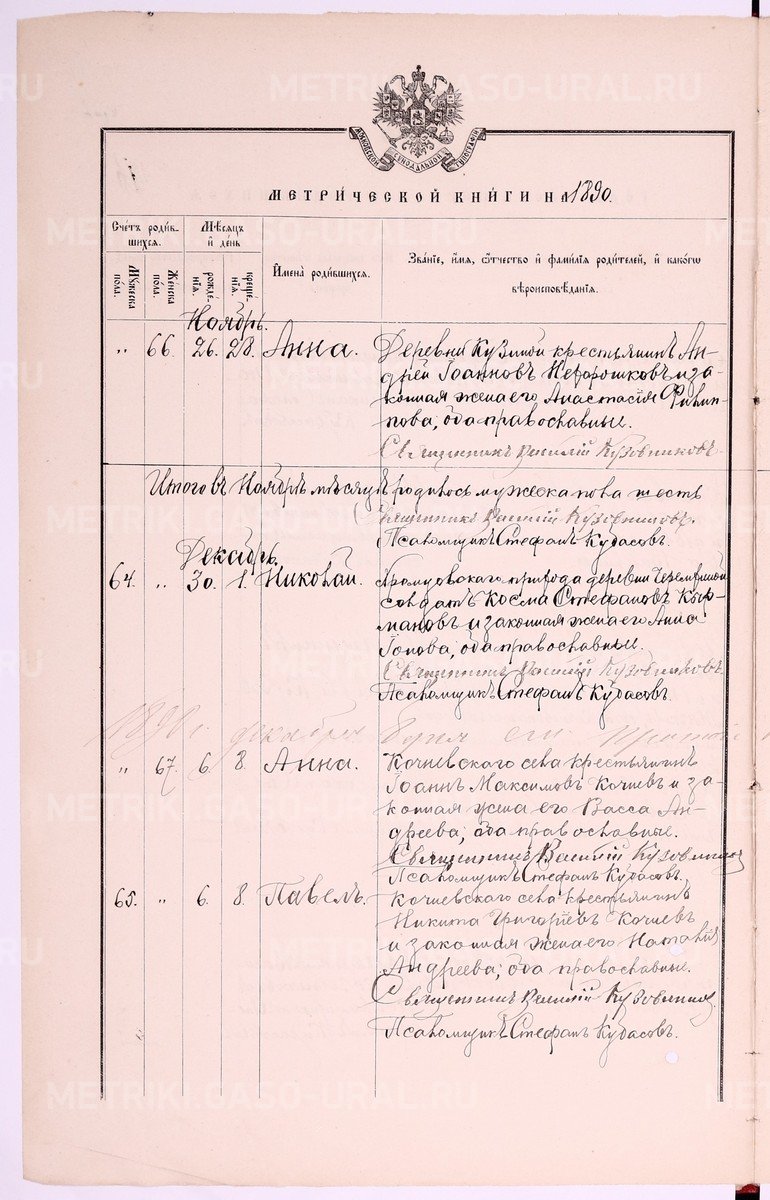 METRIKI.GASO-URAL.RU
МОСКОВСКОЙ СѴНОДАЛЬНОЙ ТИПОГРАФІИ
МЕТРИ́ЧЕСКОЙ КНИ́ГИ НА 1890.
Сче́тъ роди́в-
шихся.
Мѣ́сяцъ
и҆ де́нь
Мꙋ́жеска
по́ла.
Же́нска
по́ла.
рожде́-
нїѧ.
креще́-
нїѧ.
И҆мена̀ роди́вшихся.
Зва́нїе, и҆́мя, ѻ҆́тчество и҆ фами́лїя роди́телей, и҆ како́гѡ
вѣроисповѣ́данїя.
Ноябрь.
„ 66. 26. 28. Анна.
Деревни Кузиной крестьянинъ Ан-
дрей Іоанновъ и за-
конная жена его Анастасія Филип-
пова, оба православные.
Священникъ Василій Кузовниковъ
Итого въ Ноябрѣ мѣсяцѣ родилось мужеска пола шесть
Священникъ Василій Кузовниковъ.
Псаломщикъ Стефанъ Кудасовъ.
Декабрь.
64. „ 30. 1. Николай.
прихода деревни
солдатъ Косма Стефановъ
и законная жена его Анна
оба православные.
Священникъ Василій Кузовниковъ
Псаломщикъ Стефанъ Кудасовъ.
1890 г. декабря
„ 67. 6. 8. Анна.
Кочневскаго села крестьянинъ
Іоаннъ Максимовъ Кочневъ и за-
конная жена его Васса Ан-
дреева; оба православные.
Священникъ Василій Кузовниковъ
Псаломщикъ Стефанъ Кудасовъ.
65. „ 6. 8. Павелъ.
Кочневскаго села крестьянинъ
Никита Григоріевъ Кочневъ
и законная жена его Наталія
Андреева; оба православные.
Священникъ Василій Кузовниковъ
Псаломщикъ Стефанъ Кудасовъ.
METRIKI.GASO-URAL.RU